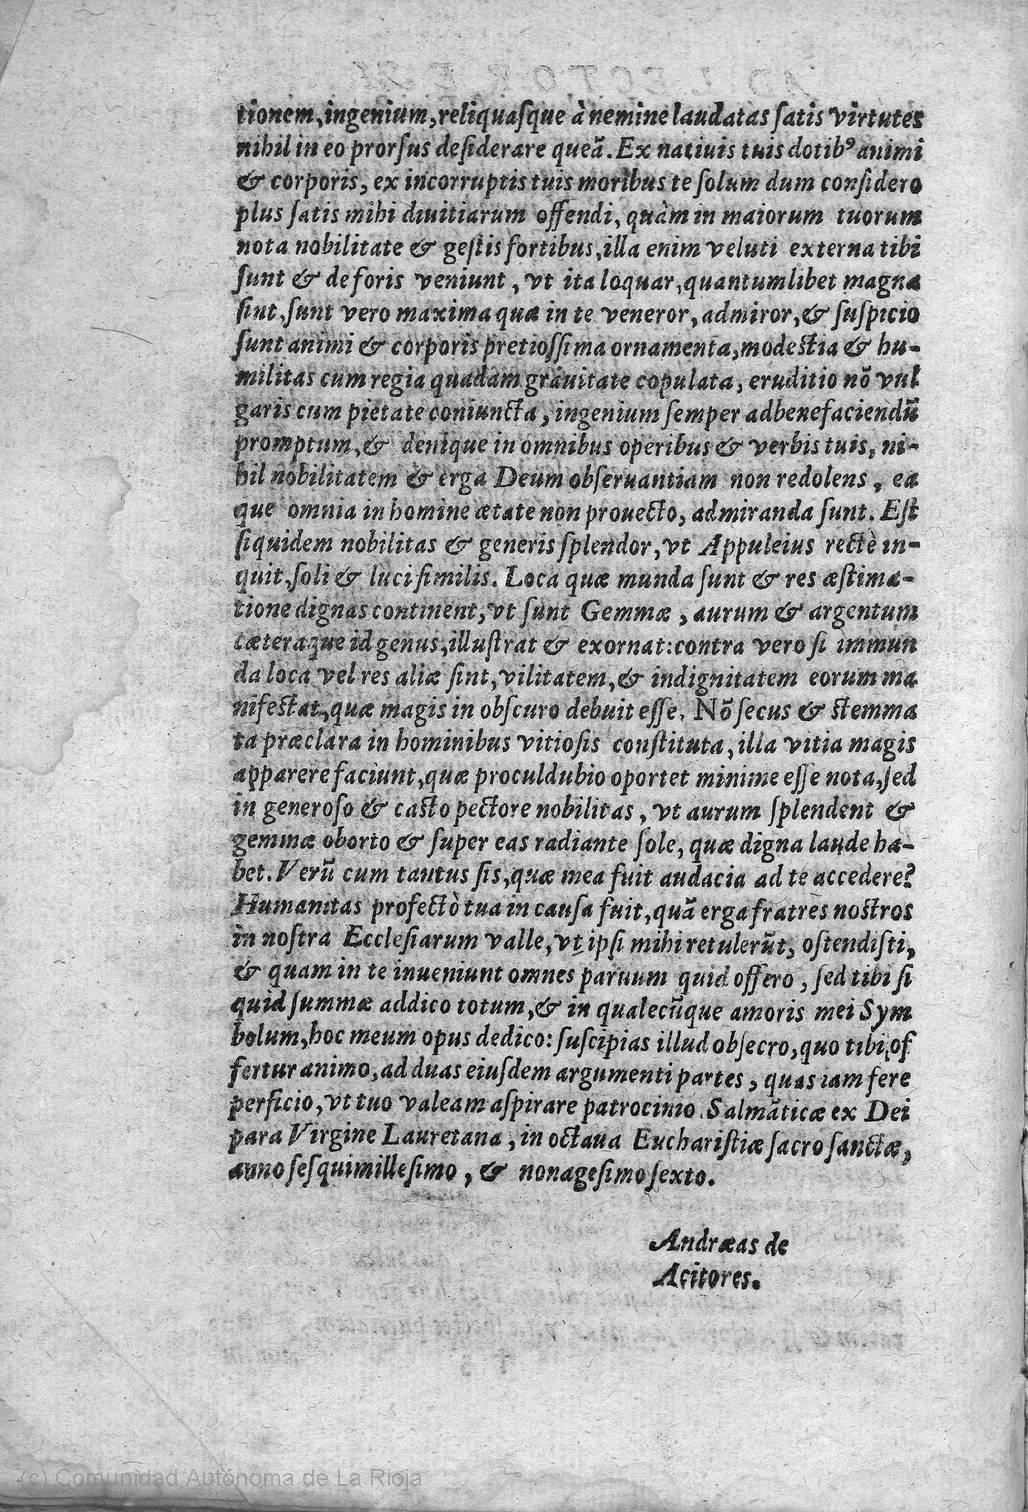 tionem, ingenium, reliquasque à nemine laudatas satis virtutes
nihil in eo prorsus desiderare queã. Ex natiuis tuis dotibꝰ animi
& corporis, ex incorruptis tuis moribus te solum dum considero
plus satis mihi diuitiarum offendi, quàm in maiorum tuorum
nota nobilitate & gestis fortibus, illa enim veluti externa tibi
sunt & deforis veniunt, vt ita loquar, quantumlibet magna
sint, sunt vero maxima quæ in te veneror, admiror, & suspicio
sunt animi & corporis pretiossima ornamenta, modestia & hu-
militas cum regia quadam grauitate copulata, eruditio nõ vul
garis cum pietate coniuncta, ingenium semper adbenefaciendũ
promptum, & denique in omnibus operibus & verbis tuis, ni-
hil nobilitatem & erga Deum obseruantiam non redolens, ea
que omnia in homine ætate non prouecto, admiranda sunt. Est
siquidem nobilitas & generis splendor, vt Appuleius rectè in-
quit, soli & luci similis. Loca quæ munda sunt & res æstima-
tione dignas continent, vt sunt Gemmæ, aurum & argentum
cæteraque id genus, illustrat & exornat: contra vero si immun
da loca vel res aliæ sint, vilitatem, & indignitatem eorum ma
nifestat, quæ magis in obscuro debuit esse. Nõ secus & stemma
ta præclara in hominibus vitiosis constituta, illa vitia magis
apparere faciunt, quæ proculdubio oportet minime esse nota, sed
in generoso & casto pectore nobilitas, vt aurum splendent &
gemmæ oborto & super eas radiante sole, quæ digna laude ha-
bet. Verũ cum tautus sis, quæ mea fuit audacia ad te accedère?
Humanitas profectò tua in causa fuit, quã erga fratres nostros
in nostra Ecclesiarum valle, vt ipsi mihi retulerũt, ostendisti,
& quam in te inueniunt omnes paruum quid offero, sed tibi si
quid summæ addico totum, & in qualecũque amoris mei Sym
bolum, hoc meum opus dedico: suscipias illud obsecro, quo tibi, of
fertur animo, ad duas eiusdem argumenti partes, quas iam fere
perficio, vt tuo valeam aspirare patrocinio. Salmãticæ ex Dei
para Virgine Lauretana, in octaua Eucharistiæ sacro sanctæ,
anno sesquimillesimo, & nonagesimo sexto.
Andræas de
Acitores.
(c) Comunidad Autónoma de La Rioja